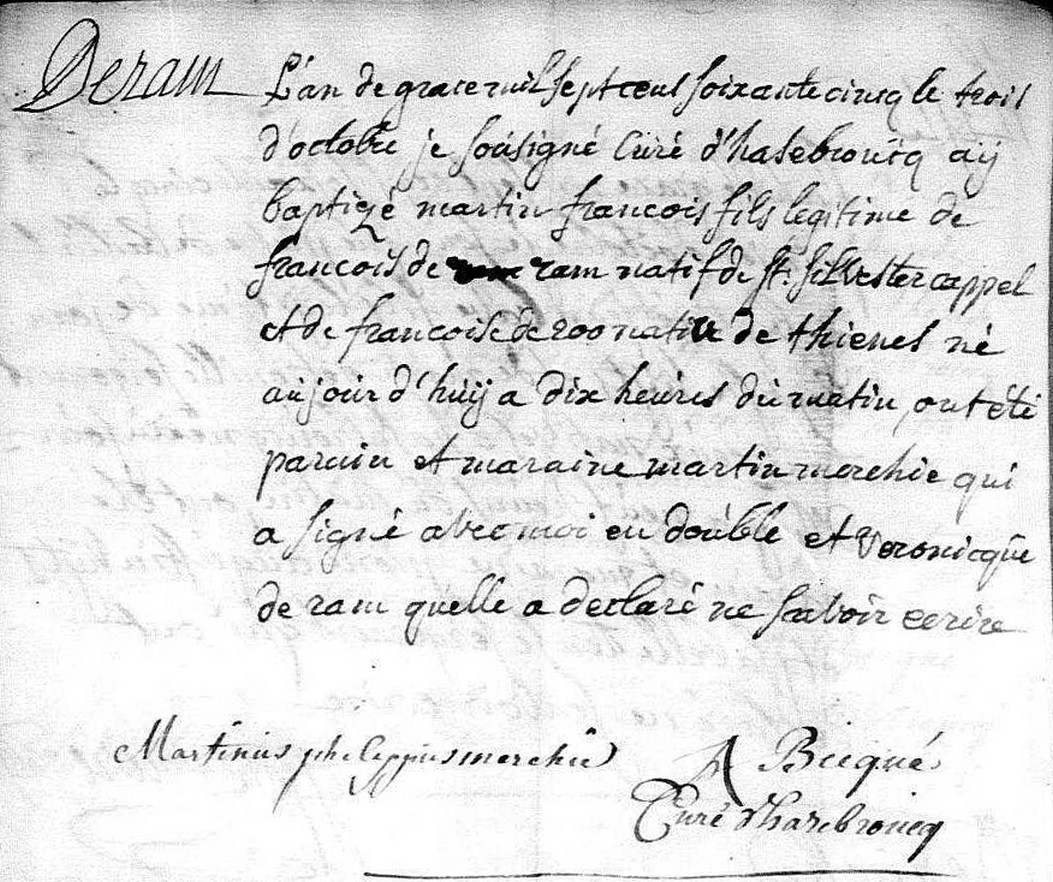 Deram
L'an de grace mil sept cens soixante cincq le trois
d'octobre je soùsigné Curé d'hasebroùcq aÿ
baptizé martin francois fils legitime de
francois de ram natif de St. Silvester cappel
et de francoise de roo native de thienes né
aùjour d'hùÿ a dix heùres dù matin, ont été
parain et maraine martin merchie qui
a signé avec moi en doùble et Veronicqùe
de ram quelle a declaré ne scavoir ecrire
Martinus philippus merchie
A Bicqué
Curé d'hazebroucq